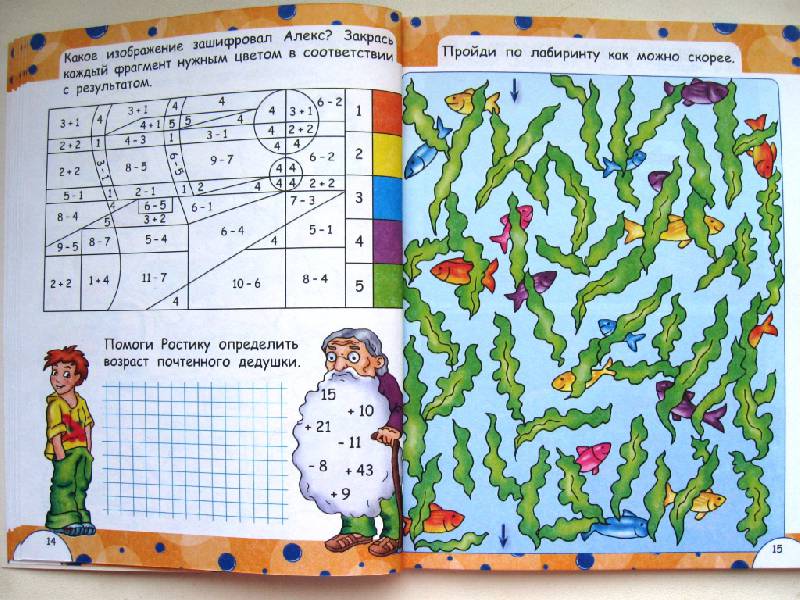 Какое изображение зашифровал Алекс? Закрась
каждый фрагмент нужным цветом в соответствии
с результатом.
3 + 1 4 3 + 1 4 4 4 3 + 1 6 - 2 1
4 + 1 5 5 4
2 + 2 1 4 - 3 1 3 - 1 4 2 + 2
4 4
2 + 2 3 - 1 8 - 5 6 - 5 9 - 7 6 - 2 2
4 4
5 - 1 1 2 - 1 1 2 4 4 4 2 + 2
8 - 4 5 6 - 5 6 - 1 7 - 3 3
3 + 2
9 - 5 8 - 7 5 - 4 6 - 4 4 5 - 1 4
2 + 2 1 + 4 11 - 7 4 10 - 6 8 - 4 5
Помоги Ростику определить
возраст почтенного дедушки.
15
+ 10
+ 21
- 11
- 8
+ 43
+ 9
14
Пройди по лабиринту как можно скорее.
15